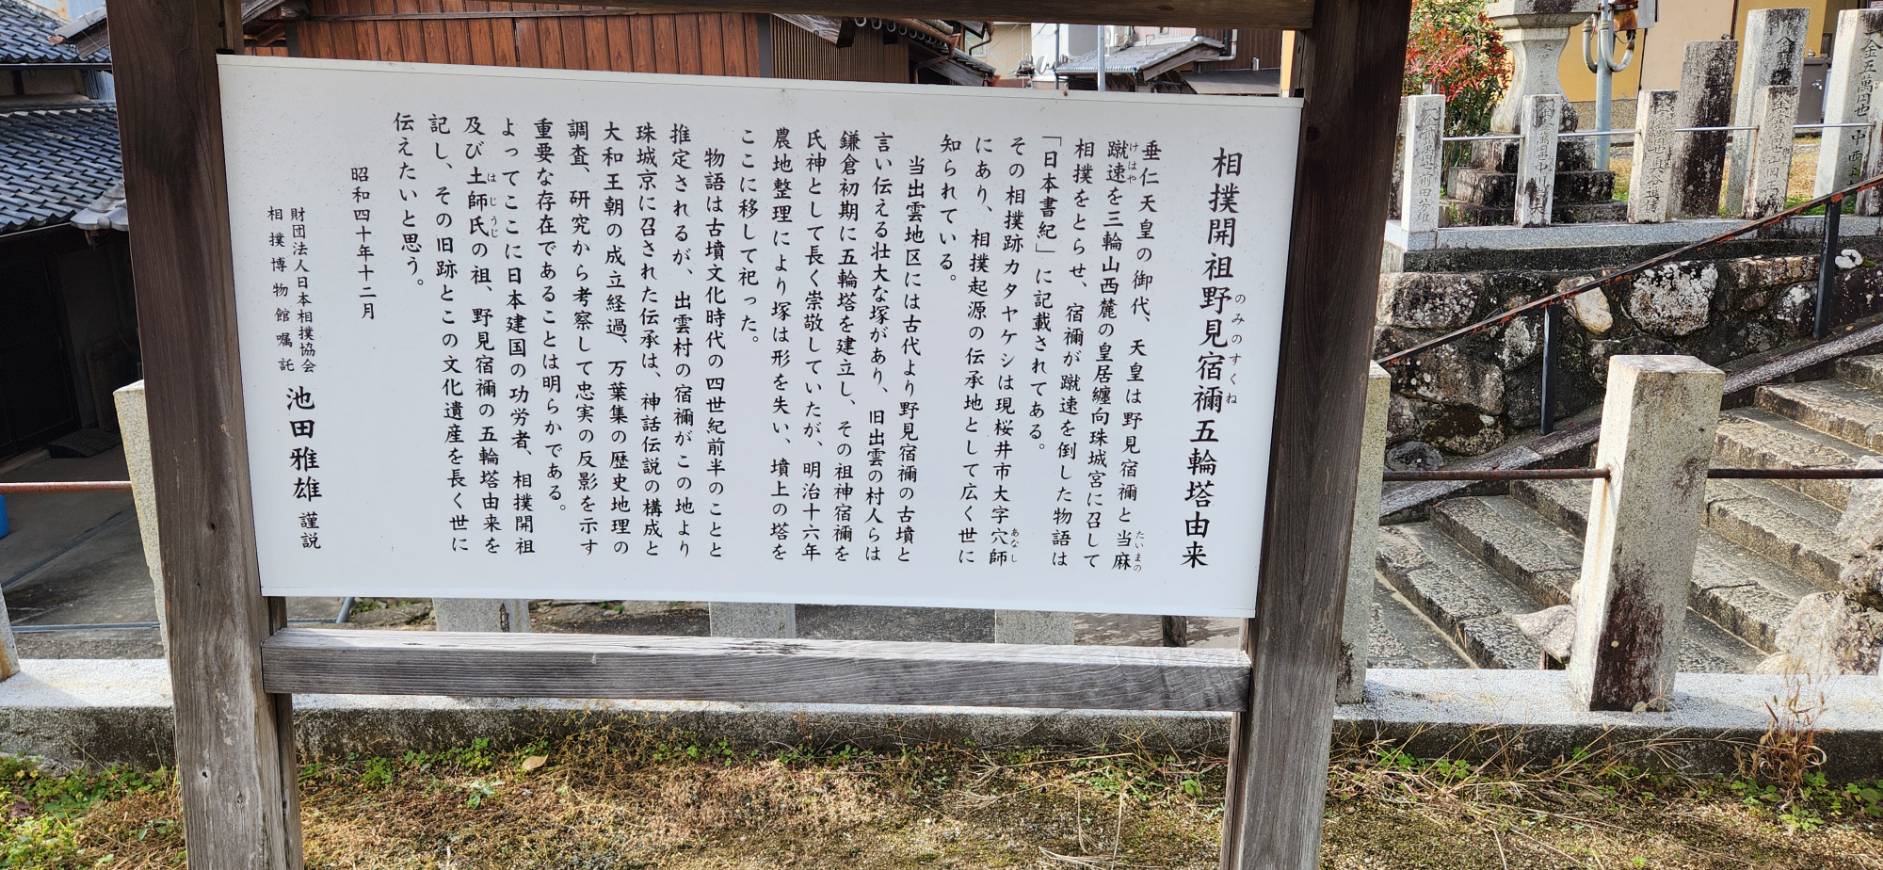 相撲開祖野見宿禰五輪塔由来
のみのすくね
垂仁天皇の御代、天皇は野見宿禰と当麻
たいまの
蹴速を三輪山西麓の皇居纏向珠城宮に召して
けはや
相撲をとらせ、宿禰が蹴速を倒した物語は
「日本書紀」に記載されてある。
その相撲跡カタヤケシは現桜井市大字穴師
あなし
にあり、相撲起源の伝承地として広く世に
知られている。
当出雲地区には古代より野見宿禰の古墳と
言い伝える壮大な塚があり、旧出雲の村人らは
鎌倉初期に五輪塔を建立し、その祖神宿禰を
氏神として長く崇敬していたが、明治十六年
農地整理により塚は形を失い、墳上の塔を
ここに移して祀った。
物語は古墳文化時代の四世紀前半のことと
推定されるが、出雲村の宿禰がこの地より
珠城京に召された伝承は、神話伝説の構成と
大和王朝の成立経過、万葉集の歴史地理の
調査、研究から考察して忠実の反影を示す
重要な存在であることは明らかである。
よってここに日本建国の功労者、相撲開祖
及び土師氏の祖、野見宿禰の五輪塔由来を
はじうじ
記し、その旧跡とこの文化遺産を長く世に
伝えたいと思う。
昭和四十年十二月
財団法人日本相撲協会
相撲博物館嘱託
池田雅雄 謹説